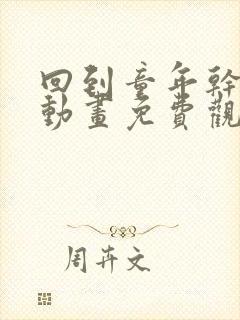 回到童年幹
動畫免費觀
周卉文